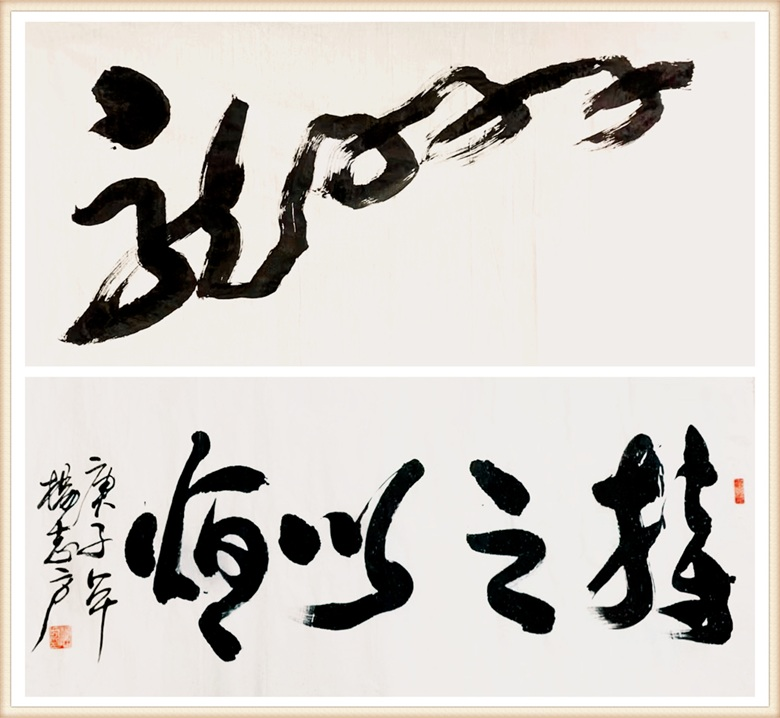 龍
持之以恒
庚子年
楊志